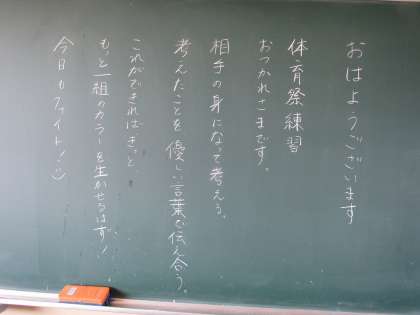 おはようございます
体育祭練習
おつかれさまです。
相手の身になって考える。
考えたことを優しい言葉で伝え合う。
これができればきっと
もっと一組のカラーを生かせるはず!
今日もファイト!:)